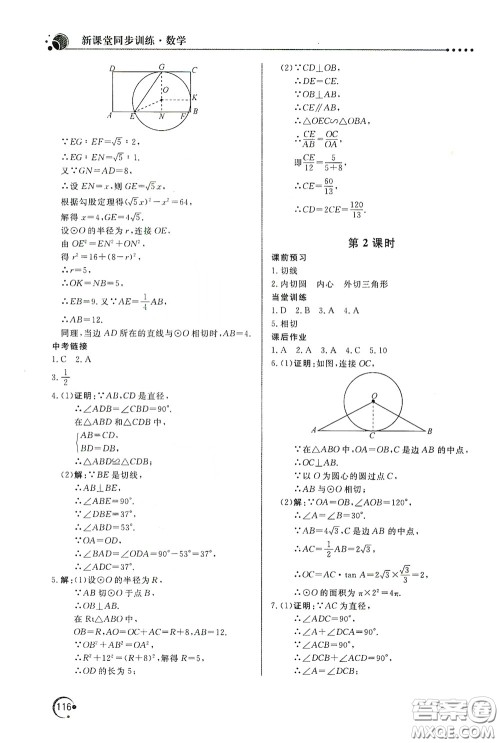 新课堂同步训练·数学
D G C
O
K
A E N F B
∵EG∶EF=√5∶2，
∴EG∶EN=√5∶1.
又∵GN=AD=8，
∴设 EN=x，则 GE=√5x，
根据勾股定理得(√5x)²-x²=64，
解得 x=4，GE=4√5.
设⊙O的半径为 r，连接 OE，
由 OE²=EN²+ON²，
得 r²=16+(8-r)²，
∴r=5.
∴OK=NB=5，
∴EB=9. 又∵AE=1/4 AB，
∴AB=12.
同理，当边 AD 所在的直线与⊙O相切时，AB=4.
中考链接
1. C 2. A
3. 1/2
4. (1)证明：∵AB，CD是直径，
∴∠ADB=∠CBD=90°.
在△ABD和△CDB中
{AB=CD，
BD=DB，
∴△ABD≌△CDB.
(2)解：∵BE是切线，
∴AB⊥BE，
∴∠ABE=90°.
∵∠DBE=37°，
∴∠ABD=53°.
∵OA=OD，
∴∠BAD=∠ODA=90°-53°=37°，
∴∠ADC=37°.
5. 解：(1)设⊙O的半径为 R，
∵AB切⊙O于点 B，
∴OB⊥AB.
在 Rt△ABO中，
OB=R，AO=OC+AC=R+8，AB=12
∵OB²+AB²=OA²，
∴R²+12²=(R+8)²，解得：R=5，
∴OD的长为5；
(2)∵CD⊥OB，
∴DE=CE.
∵OB⊥AB，
∴CE∥AB，
∴△OEC∽△OBA，
∴CE/AB=OC/OA，
即 CE/12=5/(5+8)，
∴CE=60/13，
∴CD=2CE=120/13.
第 2 课时
课前预习
1. 切线
2. 内切圆 内心 外切三角形
当堂训练
1. D 2. B 3. A 4. A
5. 相切
课后作业
1. B 2. B 3. A 4. C 5. 10
6. (1)证明：如图，连接 OC，
O
A C B
∵在△ABO中，OA=OB，C是边 AB 的中点，
∴OC⊥AB.
∵以 O 为圆心的圆过点 C，
∴AB与⊙O相切于点 C.
(2)解：∵OA=OB，∠AOB=120°，
∴∠A=∠B=30°.
∵AB=4√3，C是边 AB 的中点，
∴AC=1/2 AB=2√3，
∴OC=AC·tan A=2√3×√3/3=2，
∴⊙O的面积为 π×2²=4π.
7. (1)证明：∵AC为直径，
∴∠ADC=90°，
∴∠A+∠DCA=90°.
∵∠ACB=90°，
∴∠DCB+∠DCA=90°，
116